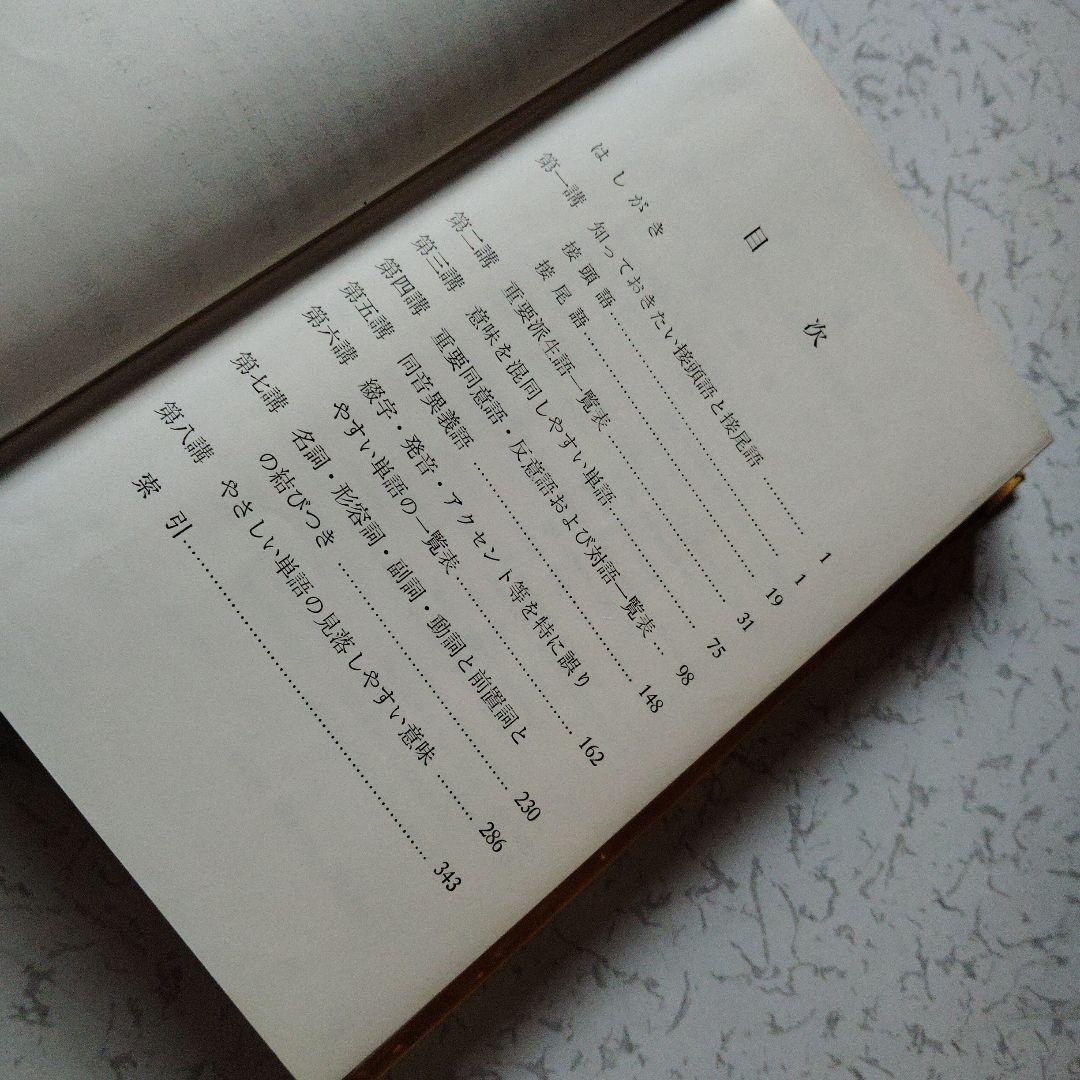 目次
はしがき
第一講 知っておきたい接頭語と接尾語 ………… 1
接頭語 ………… 1
接尾語 ………… 19
第二講 重要派生語一覧表 ………… 31
第三講 意味を混同しやすい単語 ………… 75
第四講 重要同意語・反意語および対語一覧表 … 98
第五講 同音異義語 ………… 148
第六講 綴字・発音・アクセント等を特に誤り
やすい単語の一覧表 ………… 162
第七講 名詞・形容詞・副詞・動詞と前置詞と
の結びつき ………… 230
第八講 やさしい単語の見落しやすい意味 ……… 286
索引 ………… 343